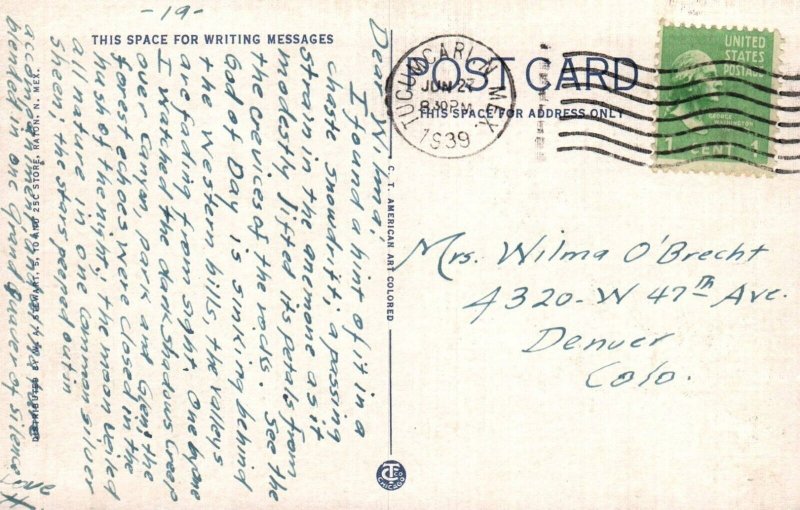 -19-
THIS SPACE FOR WRITING MESSAGES
Dear Wilma,
I found a hint of it in a
chaste snowdrift; a passing
strain in the anemone as it
modestly lifted its petals from
the crevices of the rocks. See the
God of Day is sinking behind
the Western hills, the valleys
are fading from sight. One by one
I watched the dark shadows creep
over Canyon, park and Glen; the
forest echoes were closed in the
hush of the night; the moon veiled
all nature in one common silver
sheen, the stars peeped out in
accompaniment, and
blended in one Grand Quiver of silence
DISTRIBUTED BY STEWART, 5, 10 AND 25C STORE, RATON, N. MEX.
C. T. AMERICAN ART COLORED
CT CO CHICAGO
POST CARD
THIS SPACE FOR ADDRESS ONLY
TUCUMCARI, N. MEX.
JUN 27
8 30 PM
1939
UNITED
STATES
POSTAGE
GEORGE WASHINGTON
1 CENT 1
Mrs. Wilma O'Brecht
4320-W 47th Ave.
Denver
Colo.